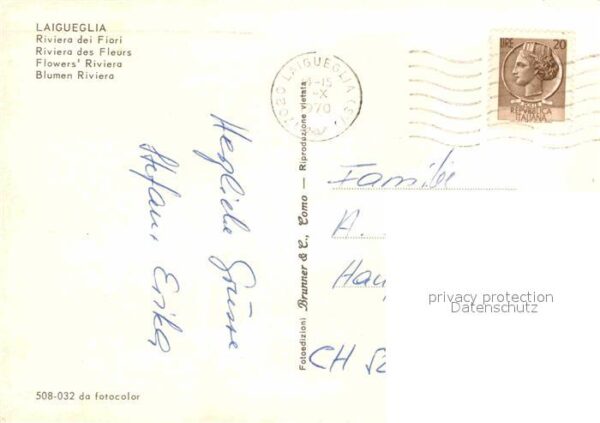 LAIGUEGLIA
Riviera dei Fiori
Riviera des Fleurs
Flowers' Riviera
Blumen Riviera
LAIGUEGLIA
-X
1970
LIRE 20
REPVBBLICA
ITALIANA
Herzliche Grüsse
Stefan + Erika
Fotoedizioni Brunner & C., Como — Riproduzione vietata
Familie
A.
Hau
CH 52
privacy protection
Datenschutz
508-032 da fotocolor